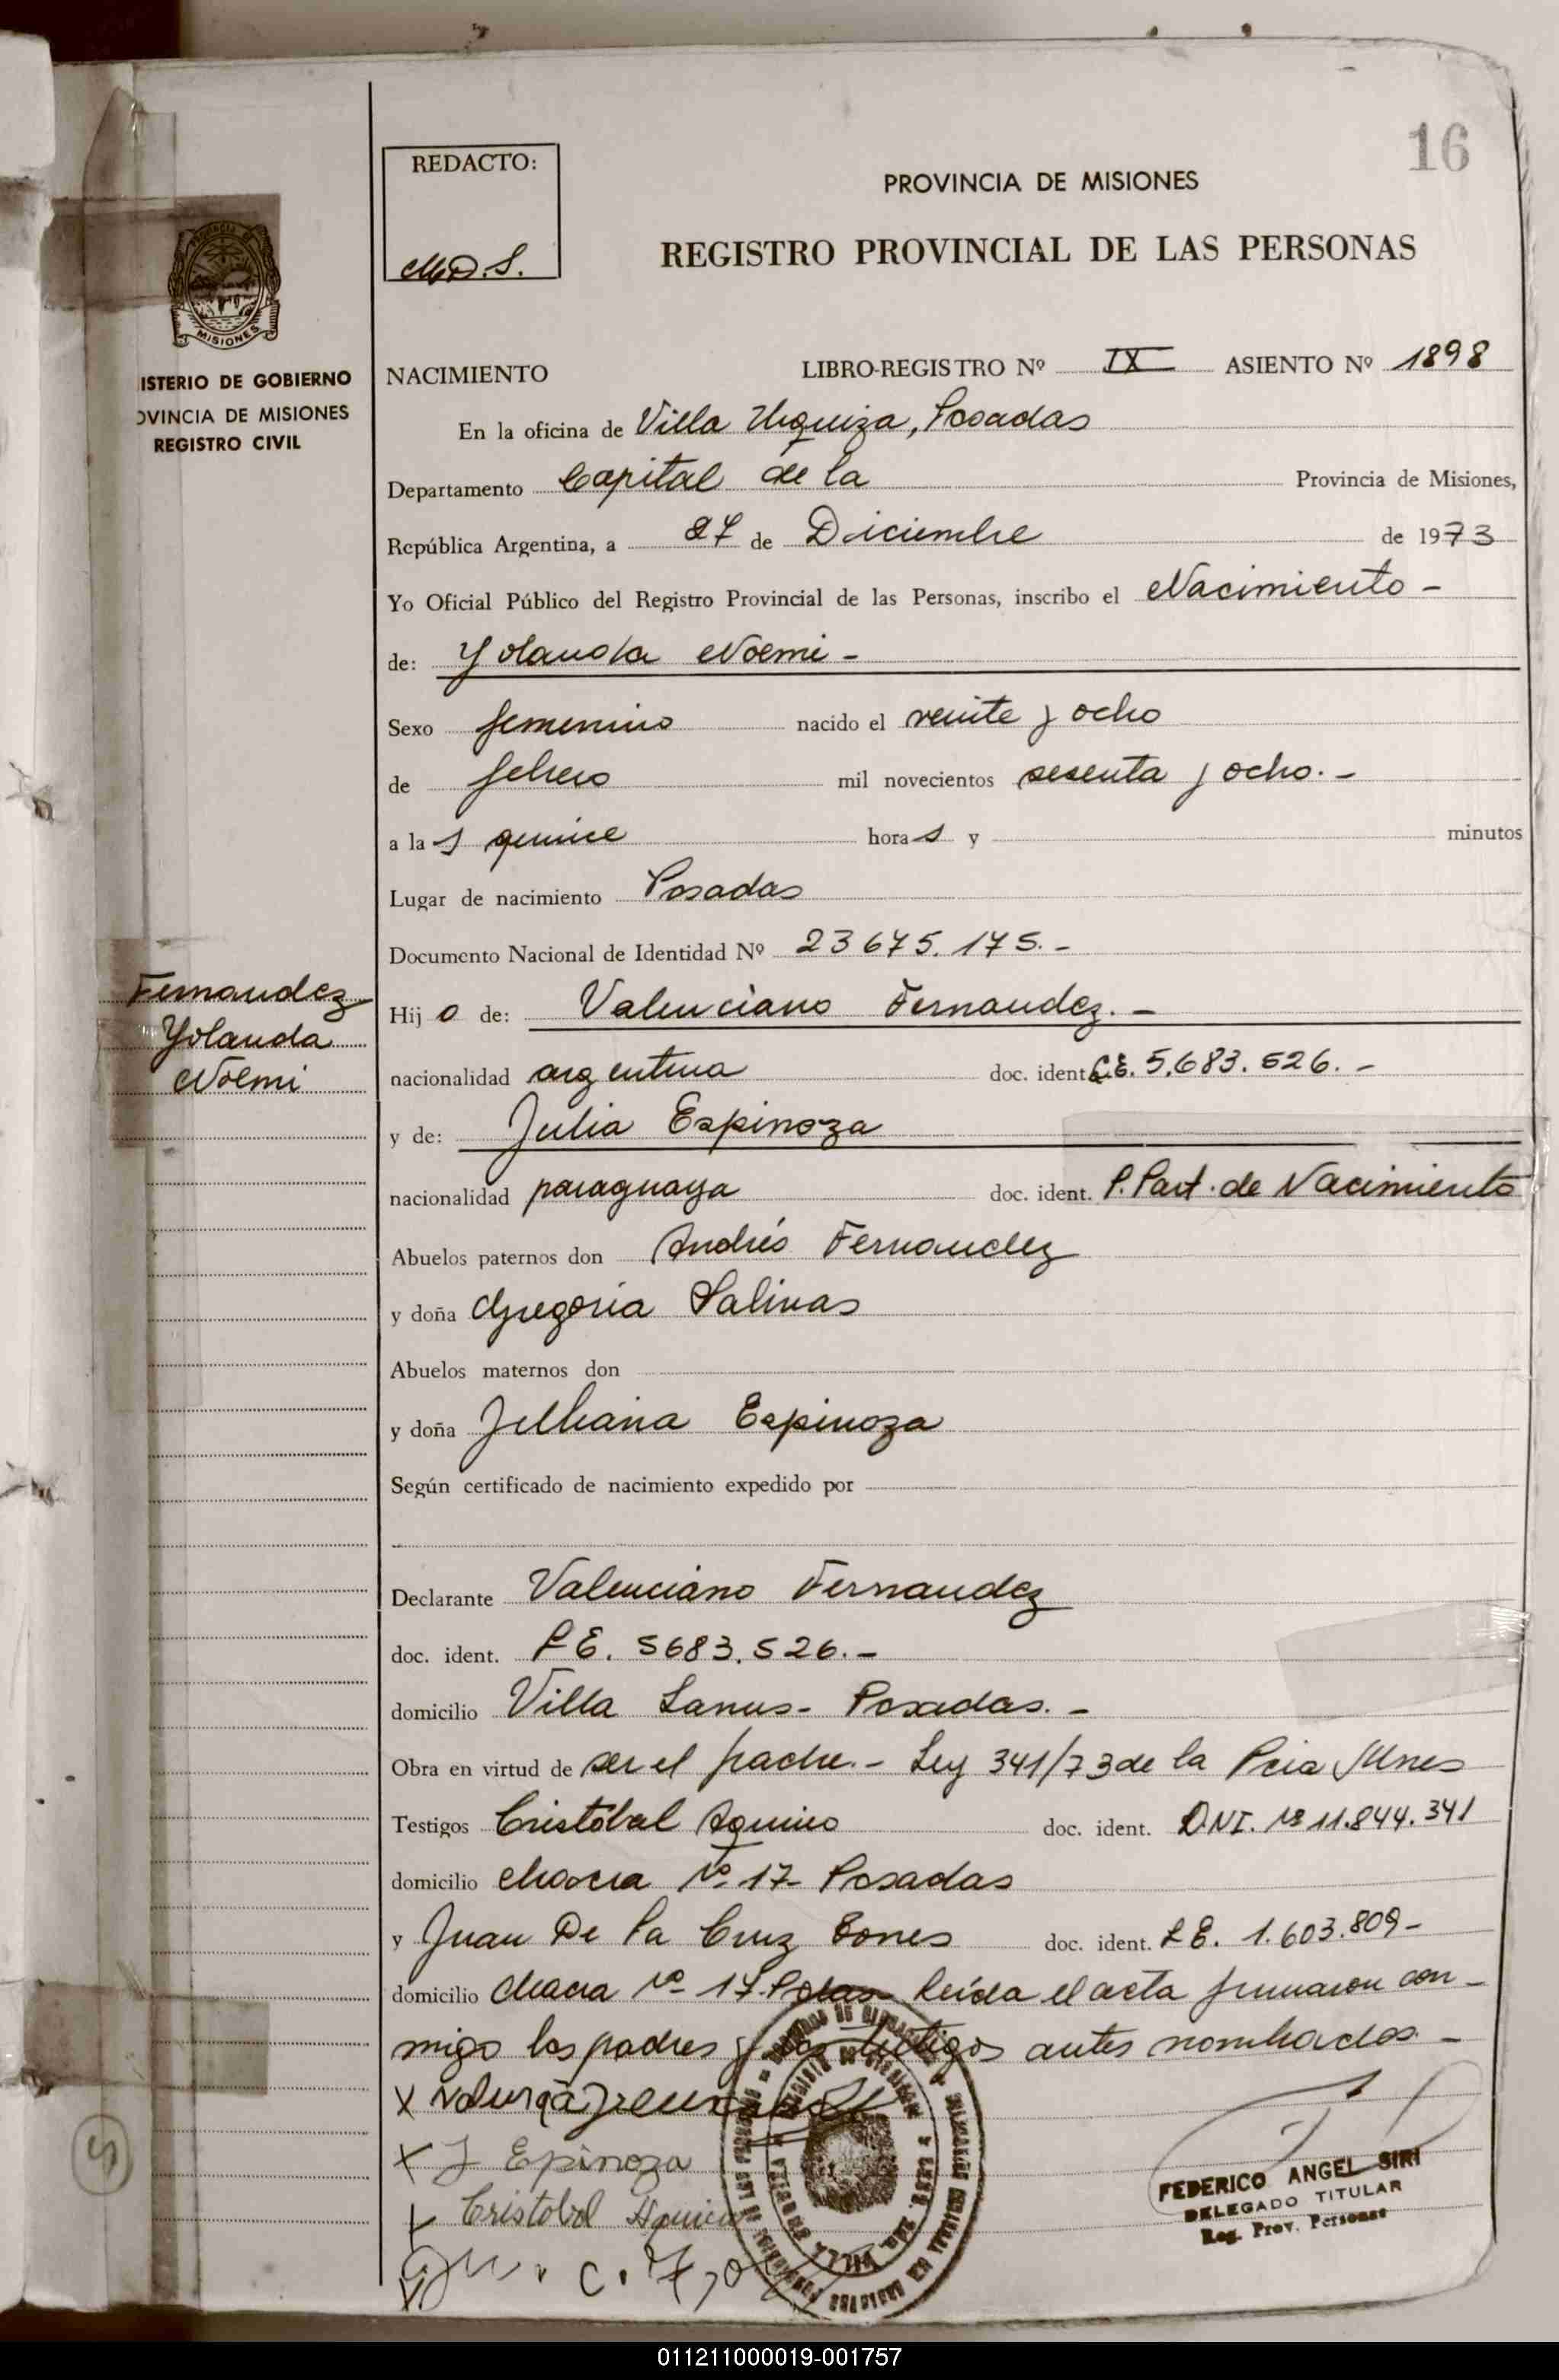 16
REDACTO:
M.D.S.
PROVINCIA DE MISIONES
REGISTRO PROVINCIAL DE LAS PERSONAS
MISIONES
ISTERIO DE GOBIERNO
OVINCIA DE MISIONES
REGISTRO CIVIL
NACIMIENTO LIBRO-REGISTRO Nº IX ASIENTO Nº 1898
En la oficina de Villa Urquiza, Posadas
Departamento Capital de la Provincia de Misiones,
República Argentina, a 27 de Diciembre de 1973
Yo Oficial Público del Registro Provincial de las Personas, inscribo el Nacimiento -
de: Yolanda Noemi -
Sexo femenino nacido el veinte y ocho
de febrero mil novecientos sesenta y ocho. -
a las quince horas y minutos
Lugar de nacimiento Posadas
Documento Nacional de Identidad Nº 23675.175. -
Fernandez
Yolanda
Noemi
Hijo de: Valenciano Fernandez. -
nacionalidad argentina doc. ident. L.E. 5.683.526. -
y de: Julia Espinoza
nacionalidad paraguaya doc. ident. P. Part. de Nacimiento
Abuelos paternos don Andrés Fernandez
y doña Gregoria Salinas
Abuelos maternos don
y doña Espinoza
Según certificado de nacimiento expedido por
Declarante Valenciano Fernandez
doc. ident. L E. 5683.526. -
domicilio Villa Lanus - Posadas. -
Obra en virtud de ser el padre. - Ley 341/73 de la Pcia Mnes
Testigos Cristóbal Aquino doc. ident. D.NI. Nº 11.844.341
domicilio chacra Nº 17 - Posadas
y Juan De La Cruz doc. ident. L E. 1.603.809 -
domicilio chacra Nº 17. Pdas - leída el acta firmaron con-
migo los padres y los testigos antes nombrados -
X
X J Epinoza
X Cristobal Aquino
FEDERICO ANGEL SIRI
DELEGADO TITULAR
Reg. Prov. Personas
011211000019-001757